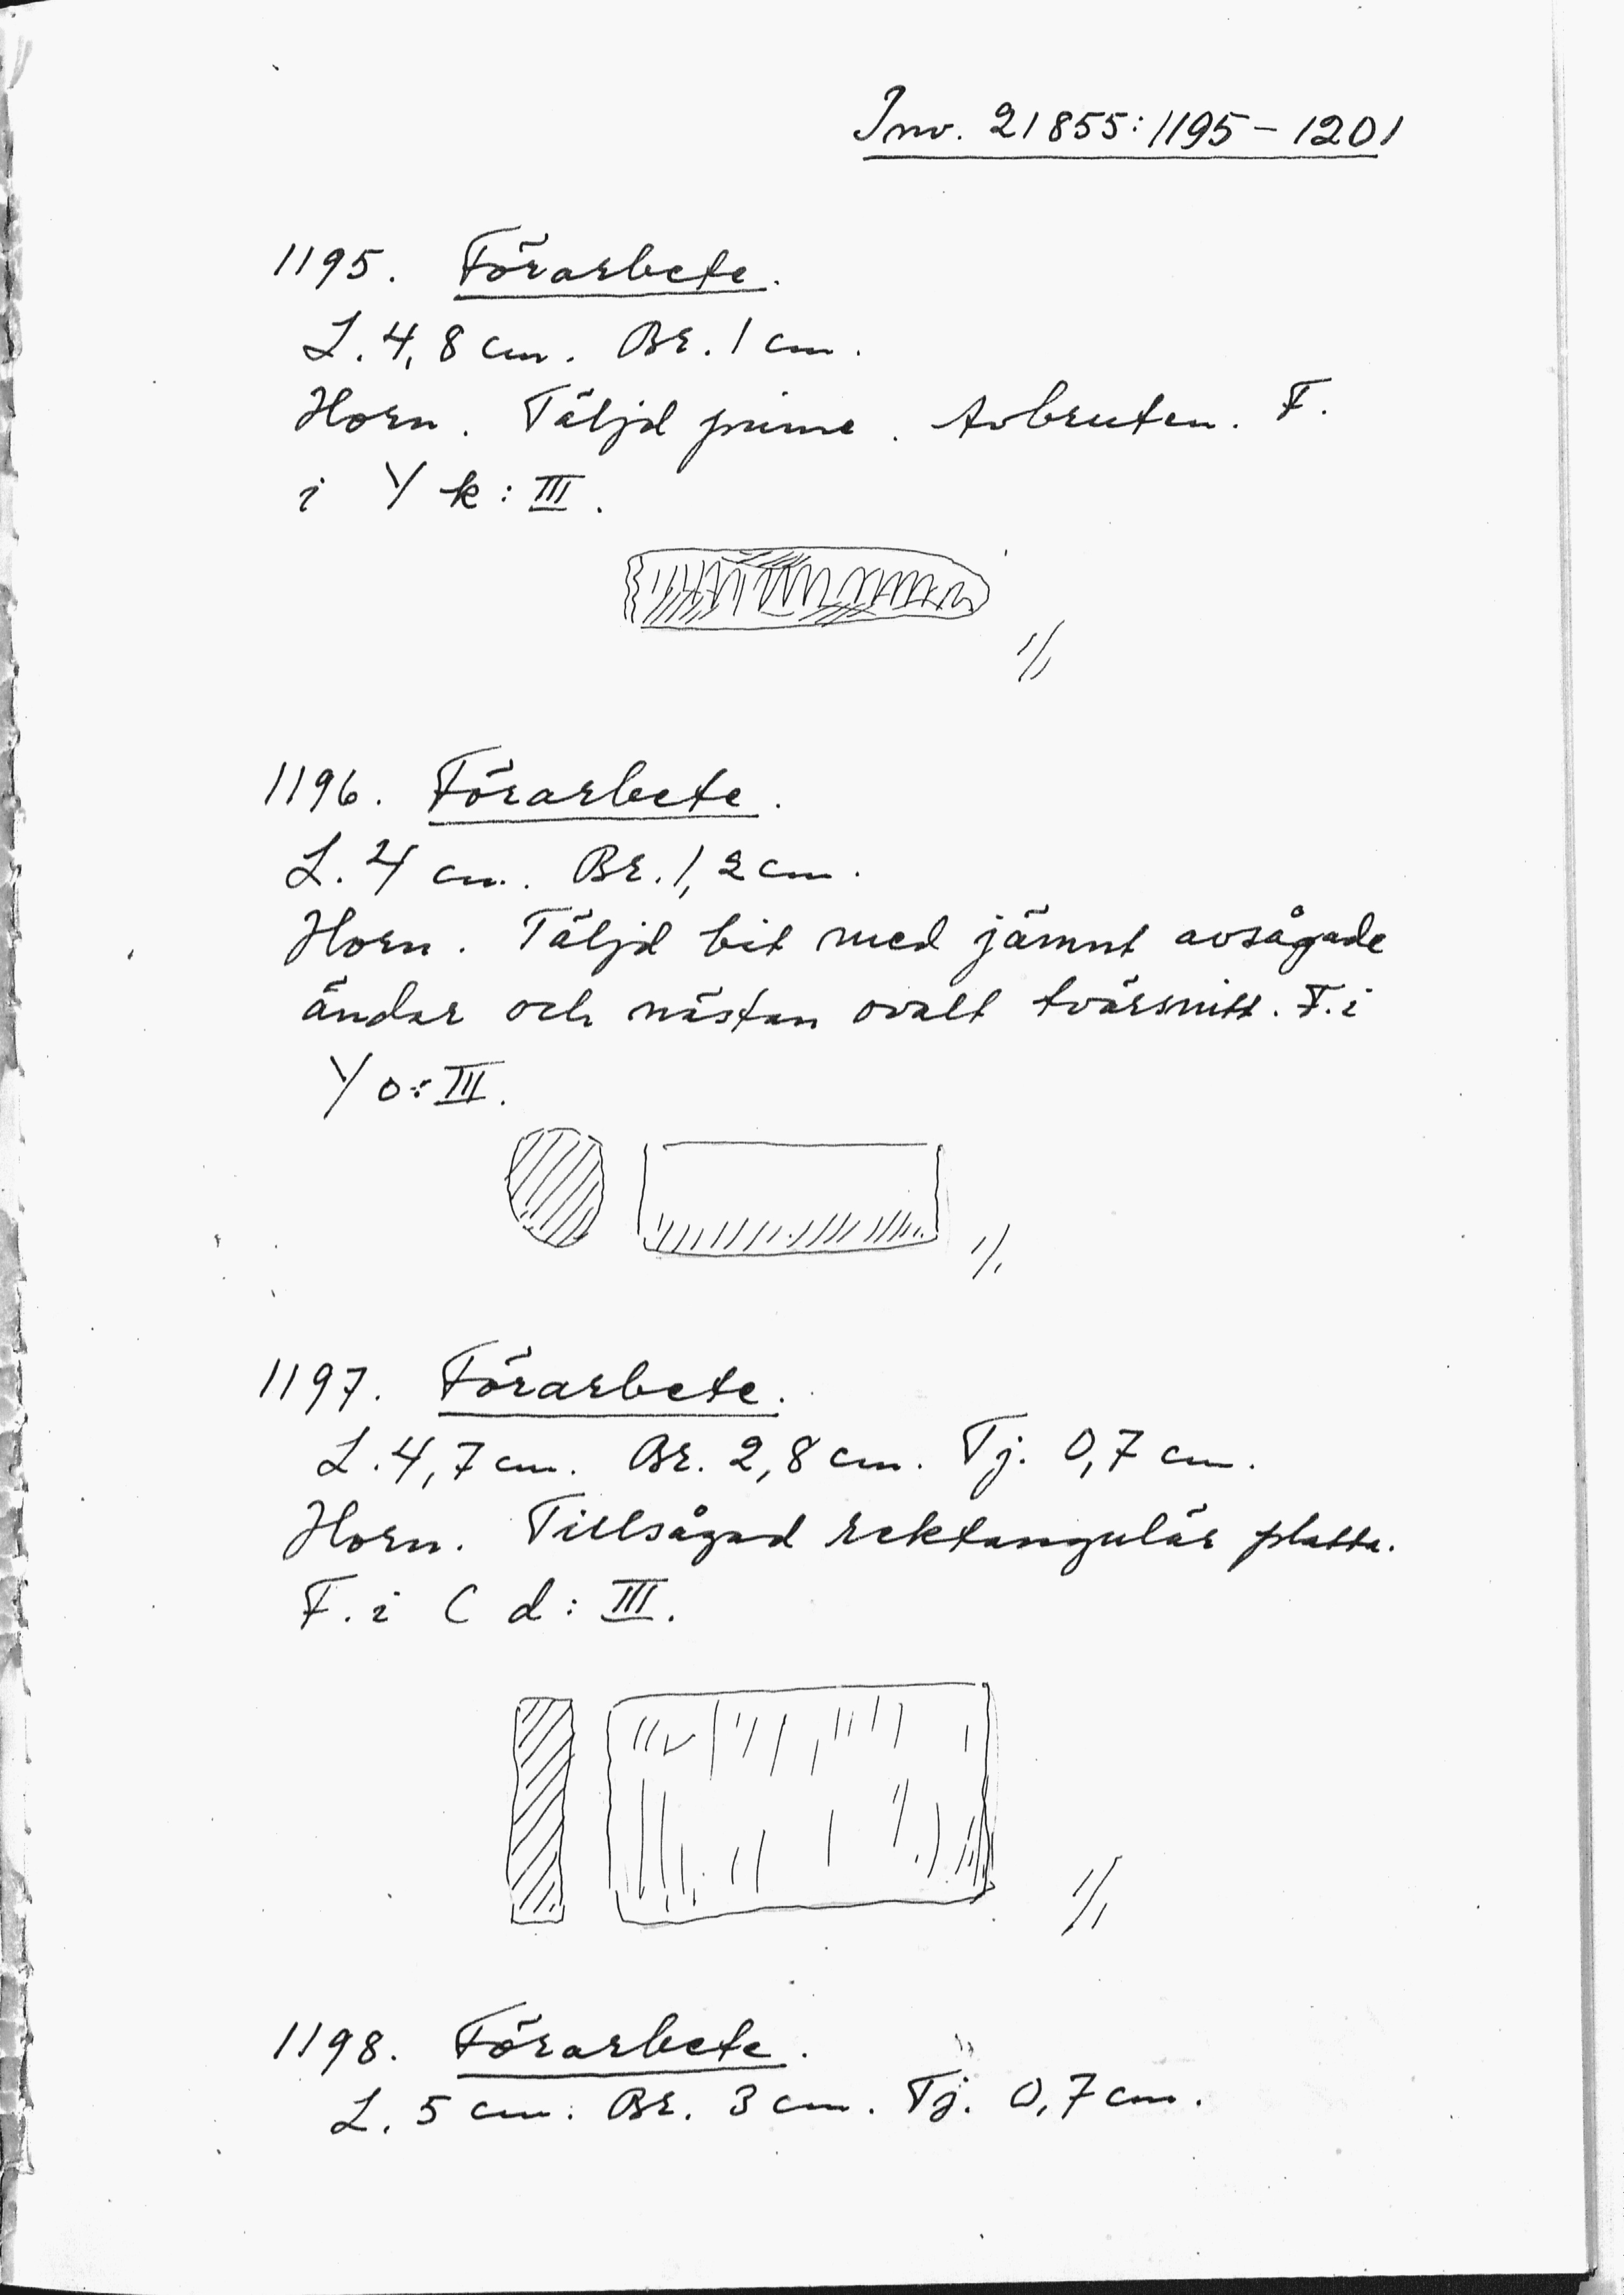 Inv. 21855:1195-1201
1195. Förarbete.
L. 4,8 cm. Br. 1 cm.
Horn. Täljd pinne. Avbruten. F.
i Y k: III.
1/1
1196. Förarbete.
L. 4 cm. Br. 1,2 cm.
Horn. Täljd bit med jämnt avsågade
ändar och nästan ovalt tvärsnitt. F. i
Y o: III.
1/1
1197. Förarbete.
L. 4,7 cm. Br. 2,8 cm. Tj. 0,7 cm.
Horn. Tillsågad rektangulär platta.
F. i C d: III.
1/1
1198. Förarbete.
L. 5 cm. Br. 3 cm. Tj. 0,7 cm.